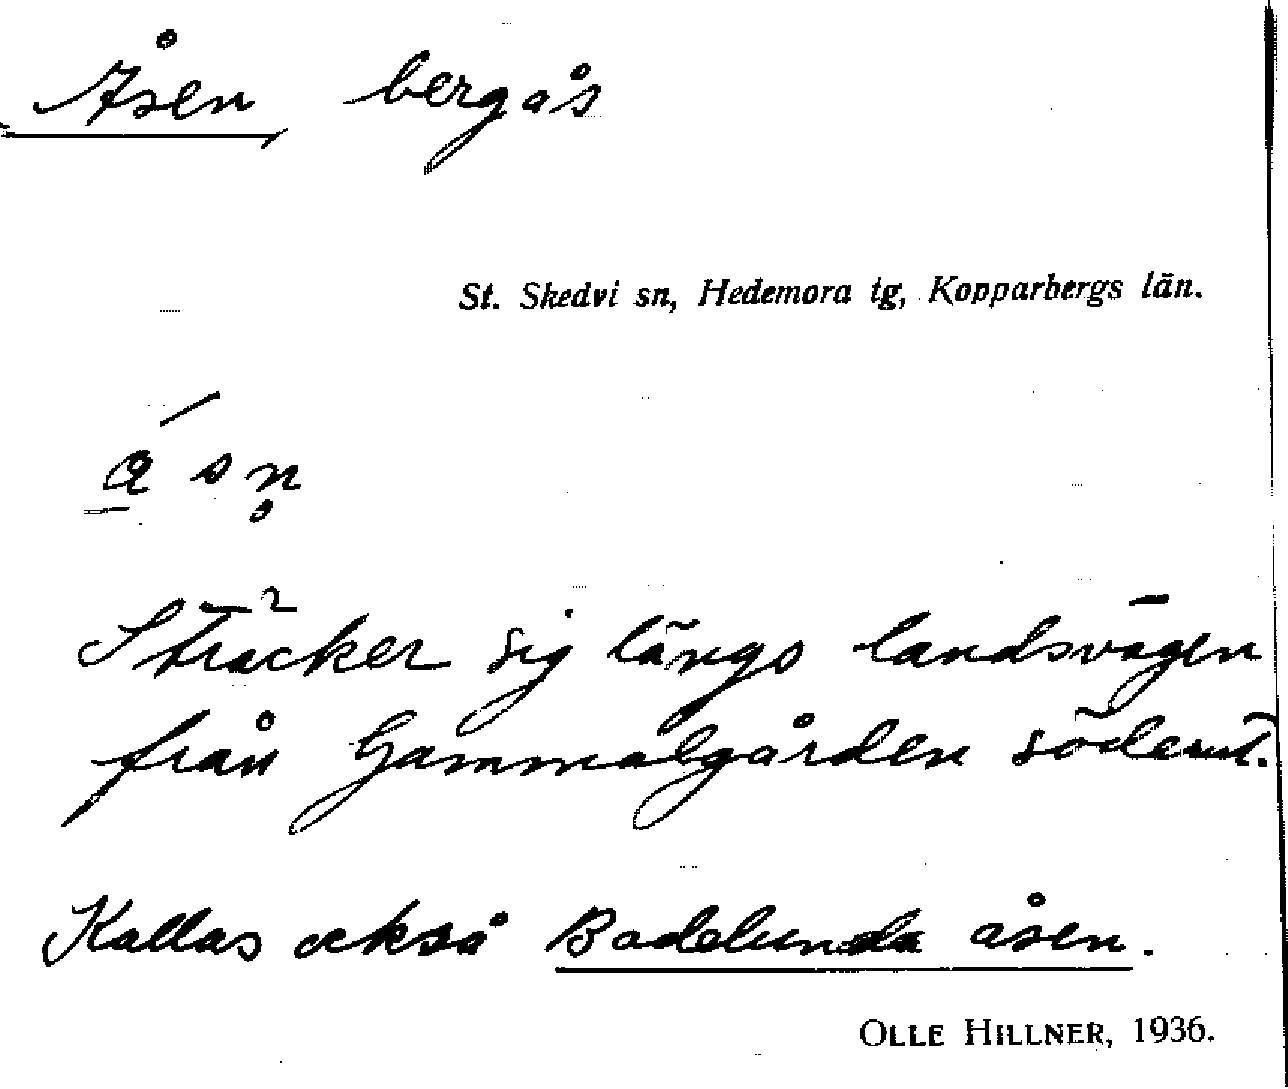 Åsen bergås
St. Skedvi sn, Hedemora tg, Kopparbergs län.
a̱´ s n̥
Sträcker sig längs landsvägen
från Gammalgården söderut.
Kallas också Badelunda åsen.
OLLE HILLNER, 1936.